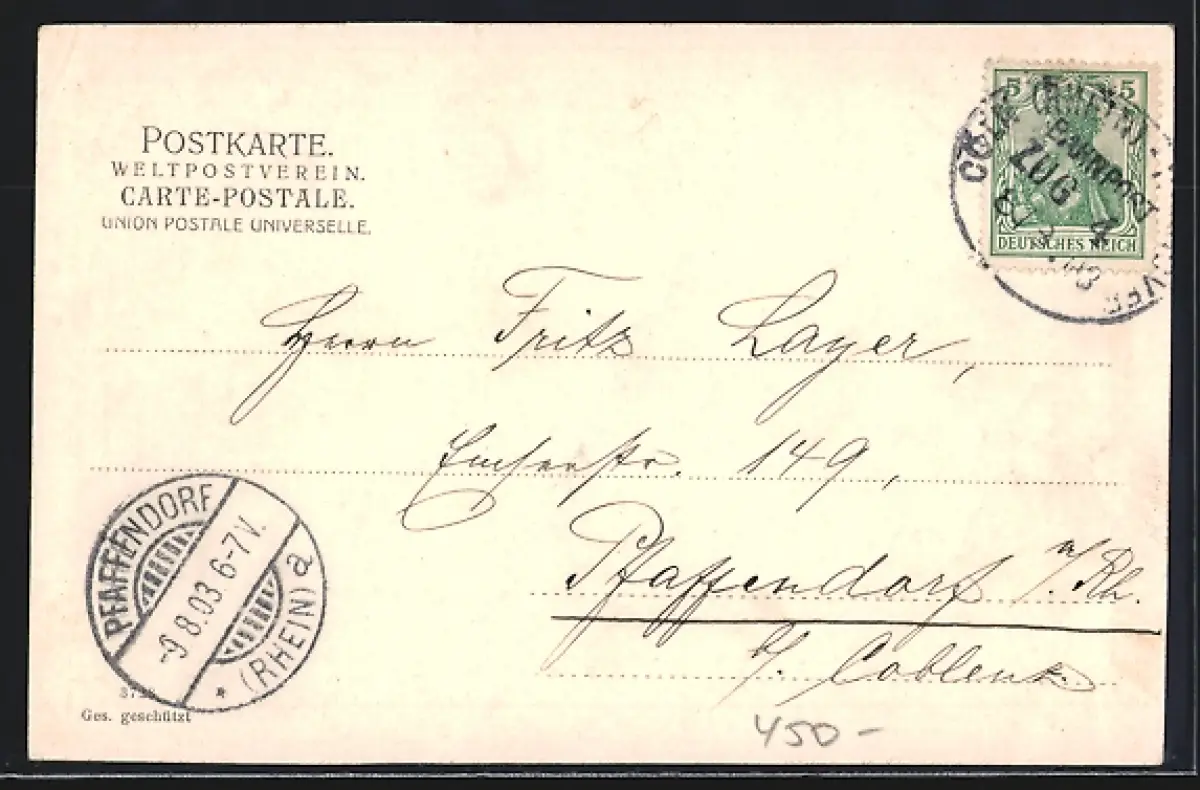 POSTKARTE.
WELTPOSTVEREIN.
CARTE-POSTALE.
UNION POSTALE UNIVERSELLE.
5 5
DEUTSCHES REICH
CÖLN (RHEIN)
BAHNPOST
ZUG 4
Herrn Fritz Layer,
Emserstr. 149,
Pfaffendorf a/Rh.
b/ Coblenz.
PFAFFENDORF
-9.8.03 6-7V.
* (RHEIN) a
Ges. geschützt
450-